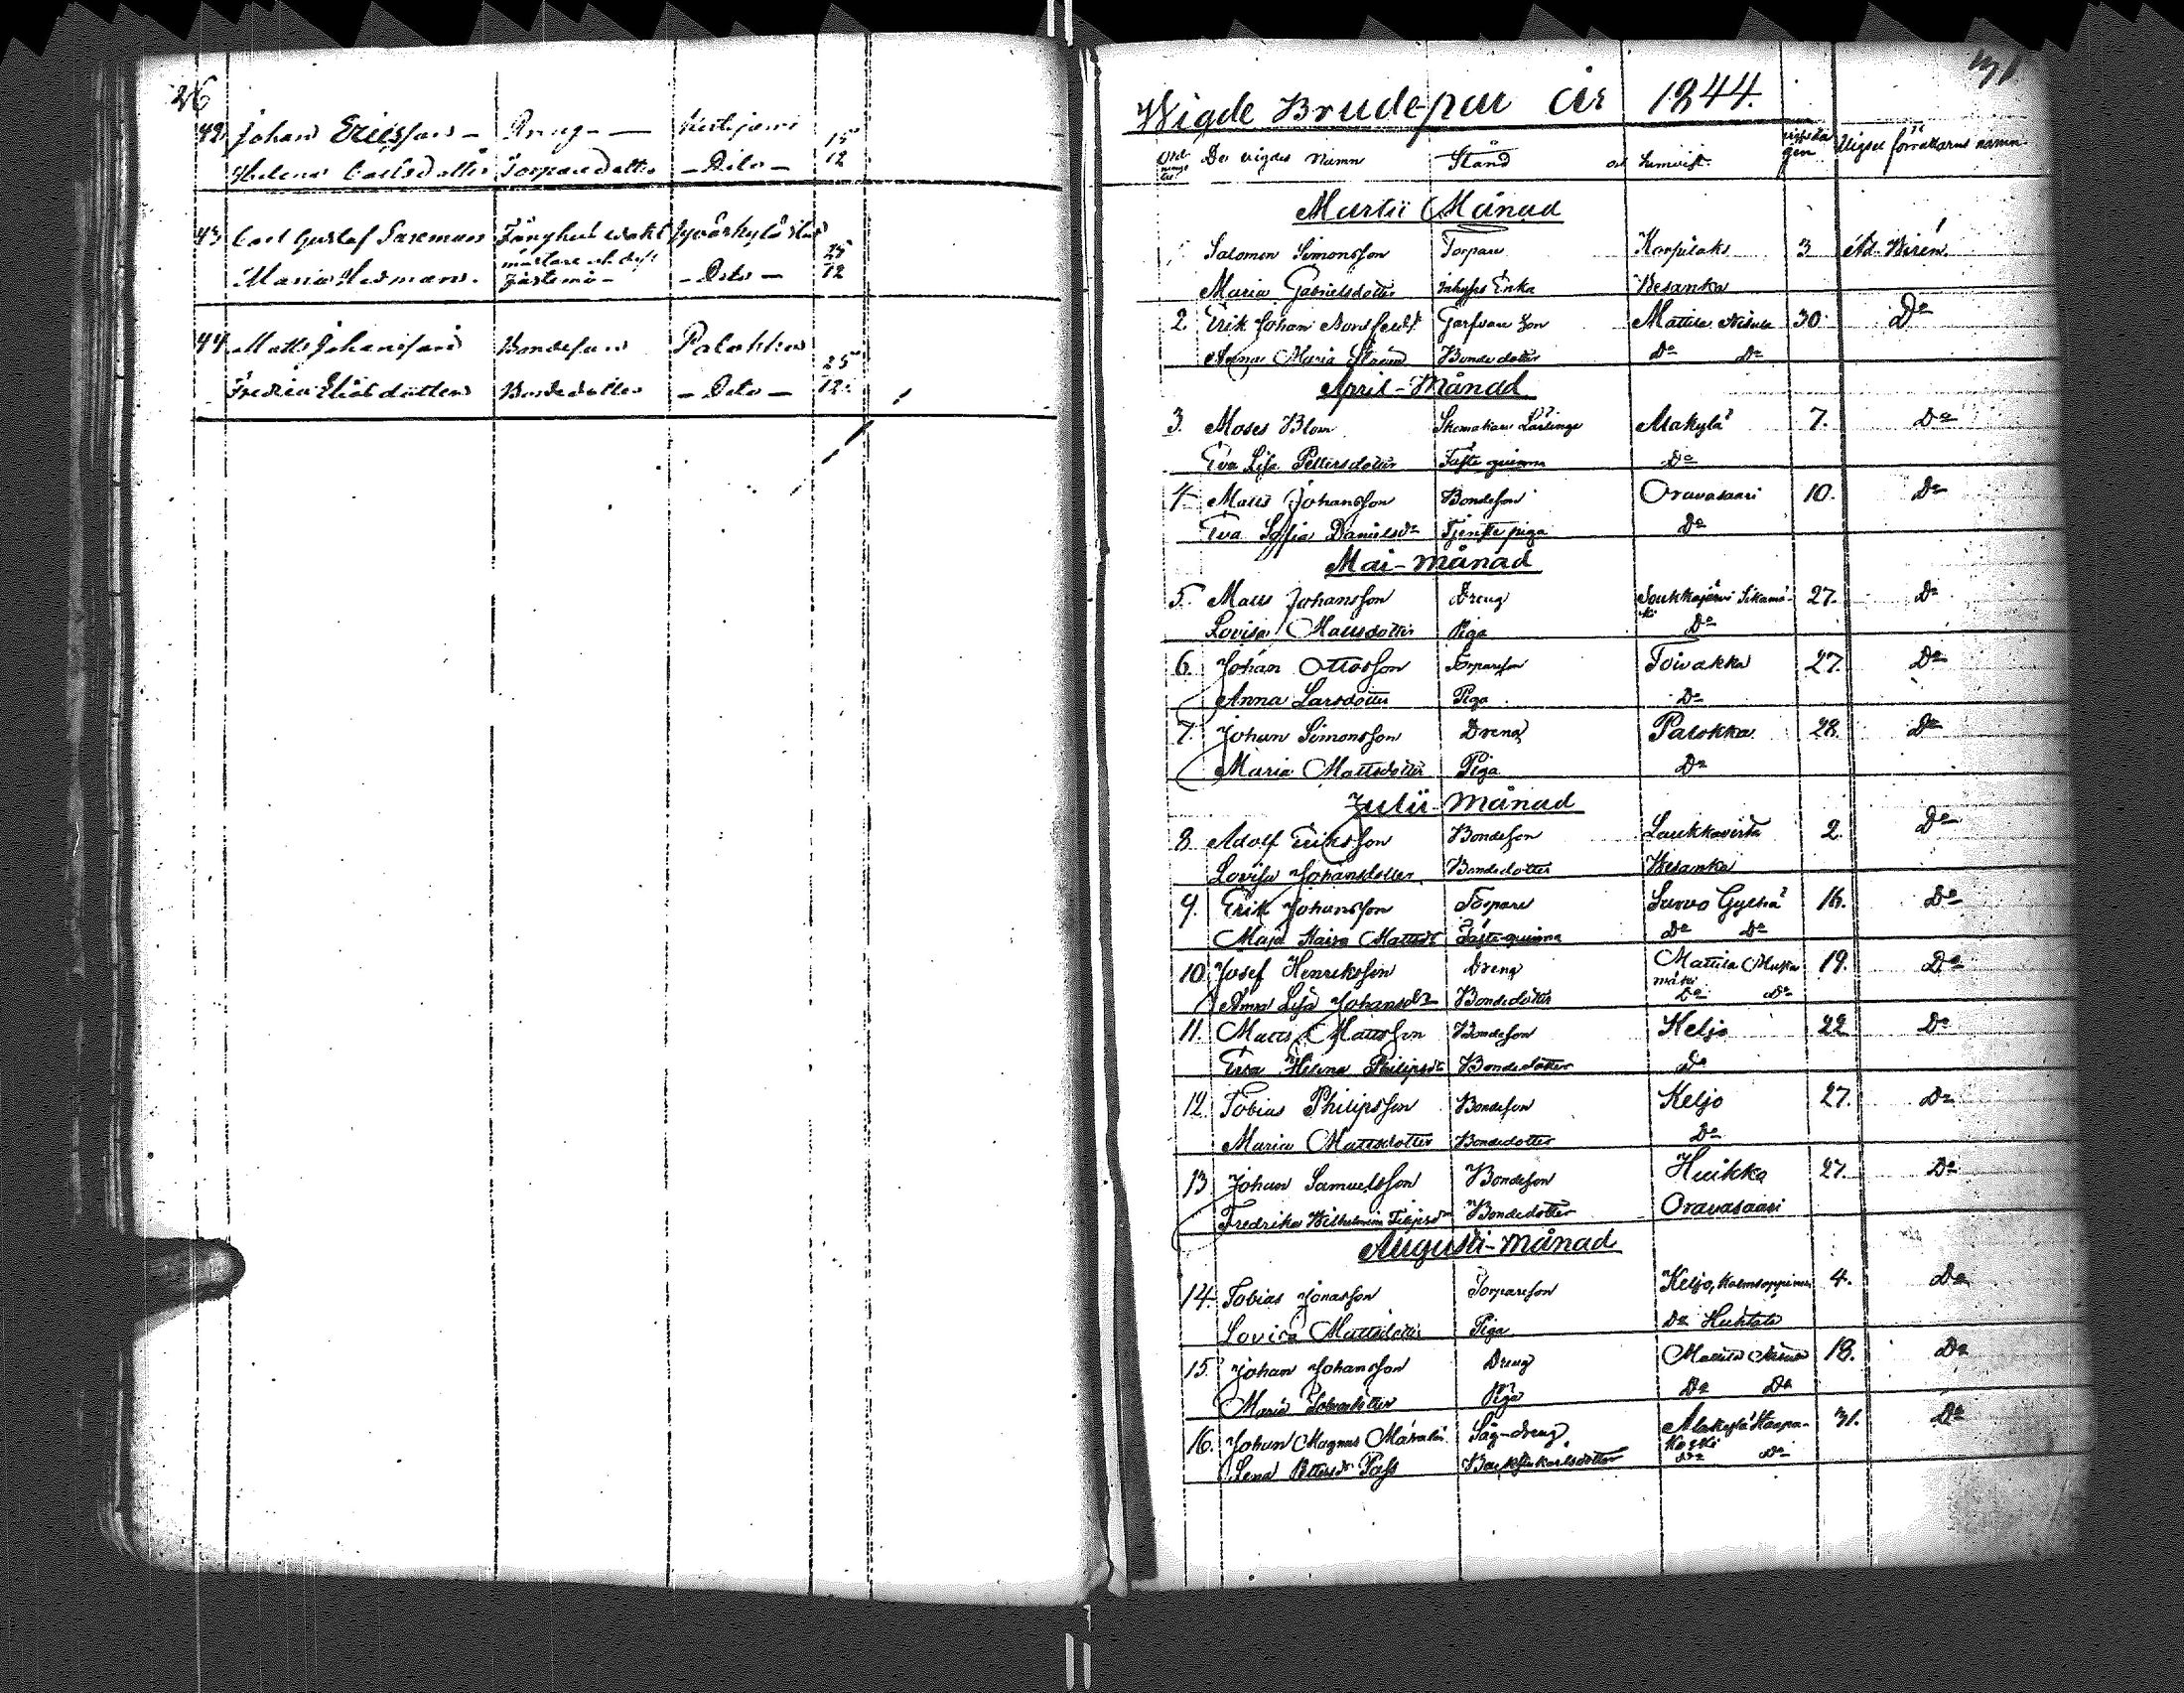 26
42 Johan Ericsson - Dreng -
Helena Carlsdotter Torparedotter - Dito - 15 12
43 Carl Gustaf Saxman Jyväskylä stad
Maria Hedman - Dito - 25 12
44 Matts Johansson Bondeson Palokka
Fredrica Eliasdotter Bondedotter - Dito - 25 12
Wigde Brudepar år 1844.
De vigdes Namn Stånd och hemvist Vigsel förrättarens namn
Martii Månad
Salomon Simonsson Torpare Korpilaks 3 Ad. Wirén
Maria Gabrielsdotter Inhyses Enka Vesanka
2. Erik Johan Mattila Nisula 30. Do
Anna Maria Bondedotter Do Do
April-Månad
3. Moses Blom Skomakare Lärlinge Alakylä 7. Do
Eva Lisa Pettersdotter Fäste qvinna Do
4. Matts Johansson Bondeson Oravasaari 10. Do
Eva Sofia Danielsdr Tjenste piga Do
Mai-Månad
5. Matts Johansson Dreng 27. Do
Lovisa Mattsdotter Piga Do
6. Johan Ottosson Torpareson Toivakka 27. Do
Anna Larsdotter Piga Do
7. Johan Simonsson Dreng Palokka 28. Do
Maria Mattsdotter Piga Do
Julii-Månad
8 Adolf Eriksson Bondeson Laukkavirta 2. Do
Lovisa Johansdotter Bondedotter Vesanka
9. Erik Johansson Torpare 16. Do
Maja Kaisa Mattsdr Fästeqvinna Do Do
10. Josef Henriksson Dreng Mattila 19. Do
mäki
Anna Lisa Johansdr Bondedotter Do Do
11. Matts Mattsson Bondeson Keljo 22 Do
Eva Helena Philipsdr Bondedotter Do
12. Tobias Philipsson Bondeson Keljo 27. Do
Maria Mattsdotter Bondedotter Do
13 Johan Samuelsson Bondeson Huikko 27. Do
Fredrika Wilhelmina Filipsdr Bondedotter Oravasaari
Augusti-Månad
14. Tobias Jonasson Torpareson Keljo, 4. Do
Lovisa Mattsdotter Piga Do Huhtala
15. Johan Johansson Dreng Mattila Nisula 18. Do
Maria Piga Do Do
16. Johan Magnus Såg-dreng Alakylä Haapa- 31. Do
Koski
Lena Pettersdr Do Do